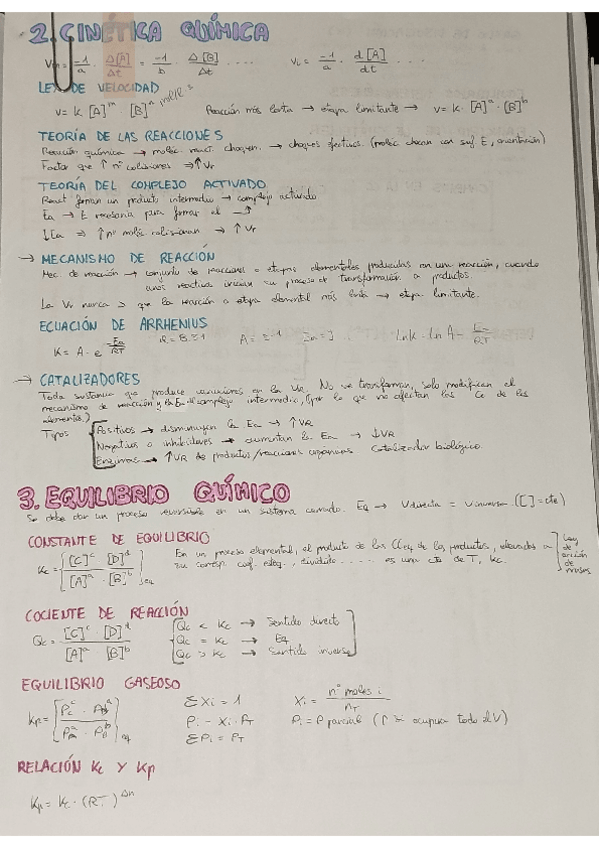 2. CINÉTICA QUÍMICA
Vm = -1/a · Δ[A]/Δt = -1/b · Δ[B]/Δt .... Vi = -1/a · d[A]/dt ....
LEY DE VELOCIDAD
v = k · [A]^m · [B]^n Reacción más lenta → etapa limitante → v = k · [A]^a · [B]^b
TEORÍA DE LAS REACCIONES
Reacción química → moléc. react. chocan. → choques efectivos. (moléc chocan con suf E, orientación)
Factor que ↑ nº colisiones → ↑ Vr
TEORÍA DEL COMPLEJO ACTIVADO
React forman un producto intermedio → complejo activado
Ea → E necesaria para formar el
↓Ea ⇒ ↑ nº moléc colisionan → ↑ Vr
→ MECANISMO DE REACCIÓN
Mec. de reacción → conjunto de reacciones o etapas elementales producidas en una reacción, cuando
unos reactivos inician su proceso de transformación a productos.
La Vr nunca > que la reacción o etapa elemental más lenta → etapa limitante.
ECUACIÓN DE ARRHENIUS
K = A · e^-Ea/RT Lnk = LnA - Ea/RT
→ CATALIZADORES
Toda sustancia que produce variaciones en la VR. No se transforman, solo modifican el
mecanismo de reacción y la Ea del complejo intermedio, (por lo que no afectan las Ce de los
elementos.)
Tipos Positivos → disminuyen la Ea → ↑VR
Negativos o inhibidores → aumentan la Ea → ↓VR
Enzimas → ↑VR de productos/reacciones orgánicas Catalizador biológico
3. EQUILIBRIO QUÍMICO
Se debe dar un proceso reversible en un sistema cerrado. Eq → V directa = V inversa. ([ ] = cte)
CONSTANTE DE EQUILIBRIO
Kc = {[C]^c · [D]^d / [A]^a · [B]^b}eq En un proceso elemental, el producto de las de los productos, elevados a
su corresp. coef. esteq., dividido ..... es una cte de T, Kc. Ley de acción de masas
COCIENTE DE REACCIÓN
Qc = [C]^c · [D]^d / [A]^a · [B]^b
Qc < Kc → Sentido directo
Qc = Kc → Eq
Qc > Kc → Sentido inverso
EQUILIBRIO GASEOSO
ΣXi = 1 Xi = nº moles i / nT
Pi = Xi · PT Pi = P parcial (P si ocupara todo el V)
ΣPi = PT
RELACIÓN Kc Y Kp
Kp = Kc · (RT)^Δn